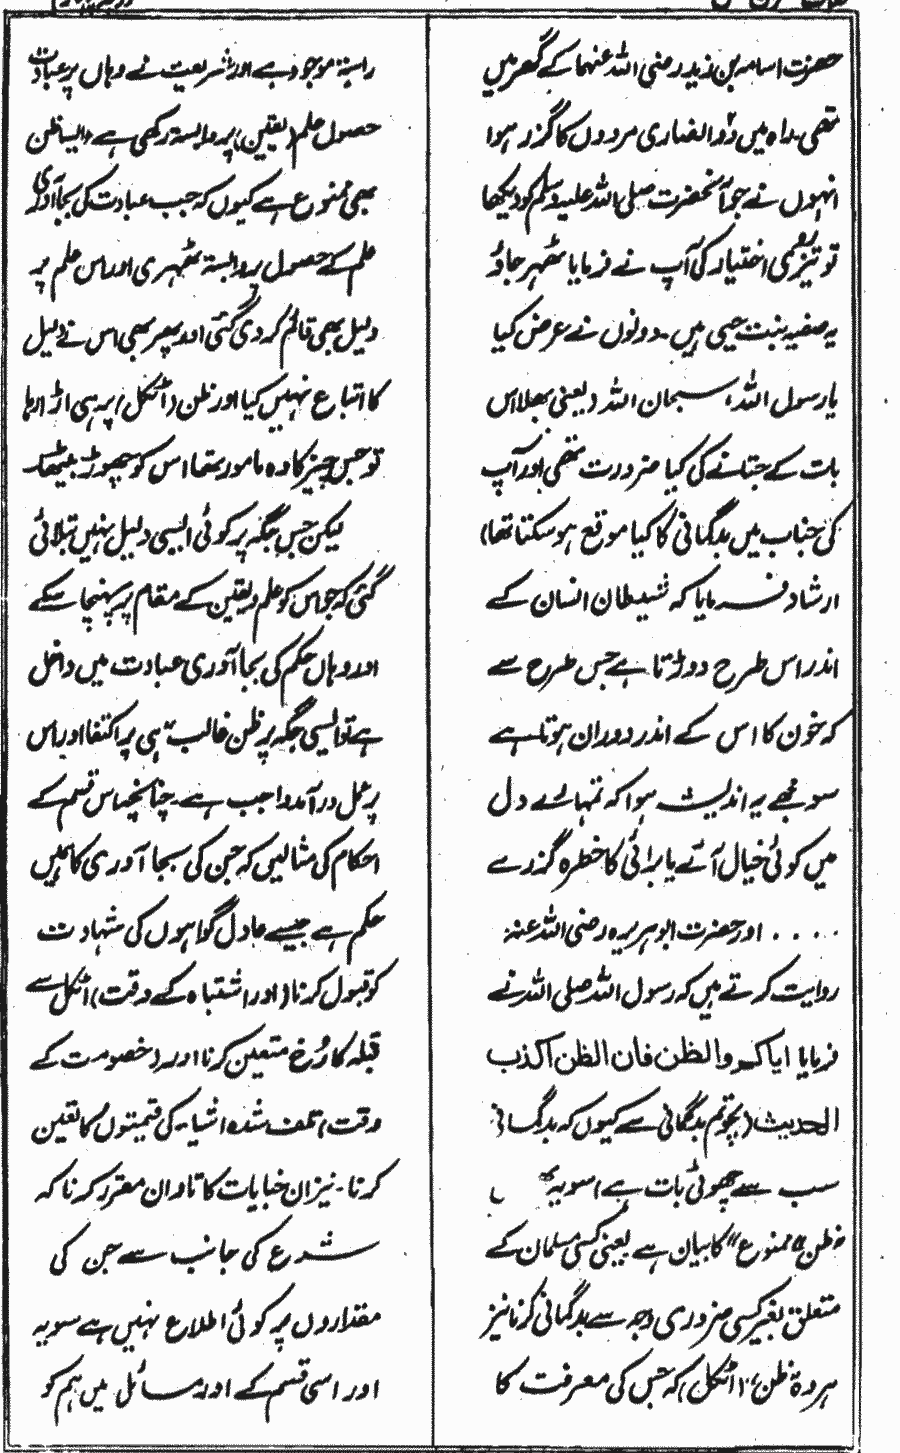 حضرت اسامہ بن زید رضی اللہ عنہما کے گھر میں
تھی۔ راہ میں دو انصاری مردوں کا گزر ہوا
انہوں نے جو آنحضرت صلی اللہ علیہ وسلم کو دیکھا
تو تیزروی اختیار کی آپ نے فرمایا ٹھہر جاؤ
یہ صفیہ بنت حیی ہیں۔ دونوں نے عرض کیا
یا رسول اللہ، سبحان اللہ (یعنی بھلا اس
بات کے جتانے کی کیا ضرورت تھی اور آپ
کی جناب میں بدگمانی کا کیا موقع ہو سکتا تھا)
ارشاد فرمایا کہ شیطان انسان کے
اندر اس طرح دوڑتا ہے جس طرح سے
کہ خون کا اس کے اندر دوران ہوتا ہے
سو مجھے یہ اندیشہ ہوا کہ تمہارے دل
میں کوئی خیال آئے یا برائی کا خطرہ گزرے
.... اور حضرت ابو ہریرہ رضی اللہ عنہ
روایت کرتے ہیں کہ رسول اللہ صلی اللہ نے
فرمایا ایاکم والظن فان الظن اکذب
الحدیث (بچو تم بدگمانی سے کیوں کہ بدگمانی
سب سے جھوٹی بات ہے) سو یہ
"ظن ممنوع" کا بیان ہے یعنی کسی مسلمان کے
متعلق بغیر کسی ضروری وجہ سے بدگمانی کرنا نیز
ہر وہ "ظن" (اٹکل) کہ جس کی معرفت کا
راستہ موجود ہے اور شریعت نے وہاں پر عبادت
حصول علم (یقین) پر وابستہ رکھی ہے، ایسا ظن
بھی ممنوع ہے کیوں کہ جب عبادت کی بجا آوری
علم کے حصول پر وابستہ ٹھہری اور اس علم پر
دلیل بھی قائم کر دی گئی اور پھر بھی اس نے دلیل
کا اتباع نہیں کیا اور ظن (اٹکل) پر ہی اڑا رہا
تو جس چیز کا وہ مامور تھا اس کو چھوڑ بیٹھا۔
لیکن جس جگہ پر کوئی ایسی دلیل نہیں بتلائی
گئی کہ جو اس کو علم و یقین کے مقام پر پہنچا سکے
اور وہاں حکم کی بجا آوری عبادت میں داخل
ہے تو ایسی جگہ پر ظن غالب ہی پر اکتفا اور اس
پر عمل درآمد واجب ہے۔ چنانچہ اس قسم کے
احکام کی مثالیں کہ جن کی بجا آوری کا ہمیں
حکم ہے جیسے عادل گواہوں کی شہادت
کو قبول کرنا (اور اشتباہ کے وقت) اٹکل سے
قبلہ کا رُخ متعین کرنا اور (خصومت کے
وقت) تلف شدہ اشیاء کی قیمتوں کا تعین
کرنا۔ نیز ان خبایات کا تاوان مقرر کرنا کہ
شرع کی جانب سے جن کی
مقداروں پر کوئی اطلاع نہیں ہے سو یہ
اور اسی قسم کے اور مسائل میں ہم کو